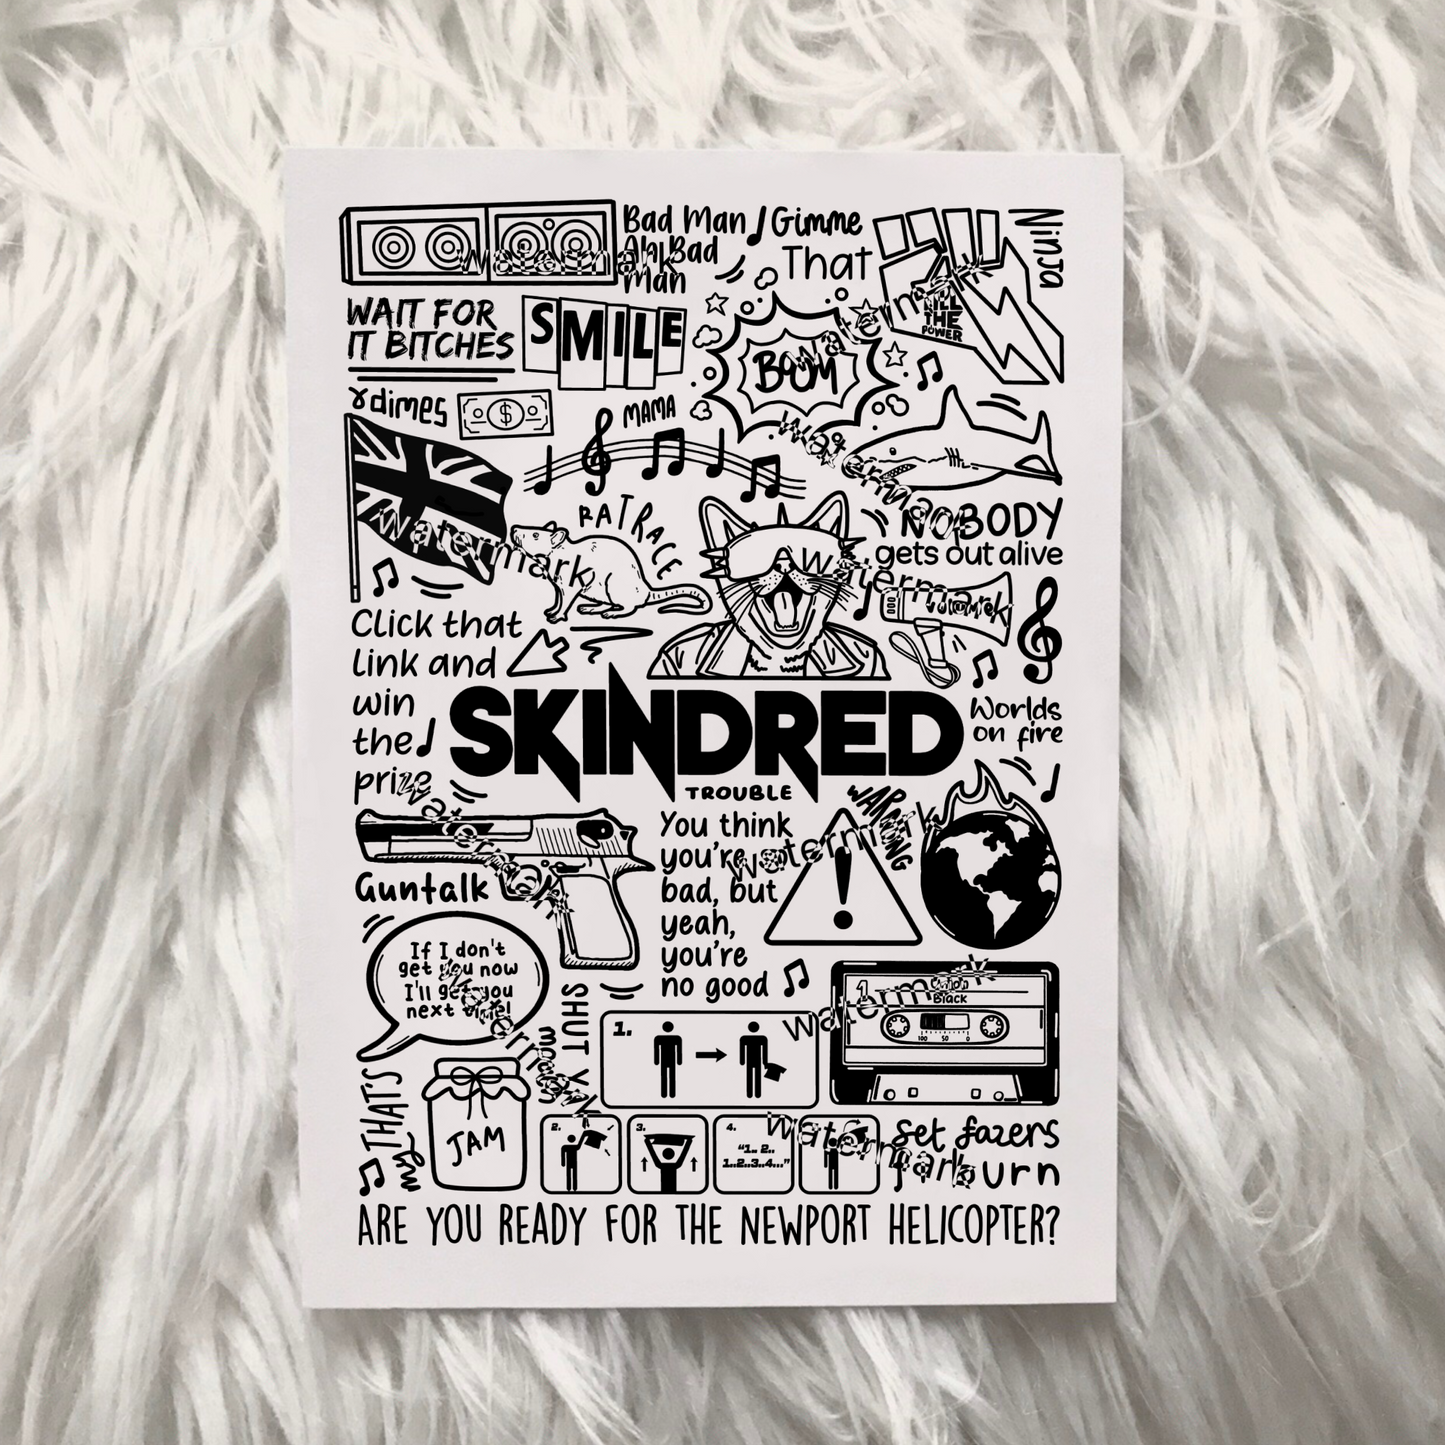 Bad Man
Ah Bad
Man
Gimme
That
Ninja
WAIT FOR
IT BITCHES
SMILE
KILL
THE
POWER
BOOM
dimes
$
MAMA
RAT RACE
NOBODY
gets out alive
Click that
link and
win
the
prize
SKINDRED
Worlds
on fire
TROUBLE
WARNING
You think
you're
bad, but
yeah,
you're
no good
!
Guntalk
If I don't
get you now
I'll get you
next time!
SHUT Y
1
Black
100 50 0
1.
THAT'S
my
JAM
2.
3.
4.
"1.. 2..
1..2..3..4..."
Set fazers
burn
ARE YOU READY FOR THE NEWPORT HELICOPTER?
watermark
watermark
watermark
watermark
watermark
watermark
watermark
watermark
watermark
watermark